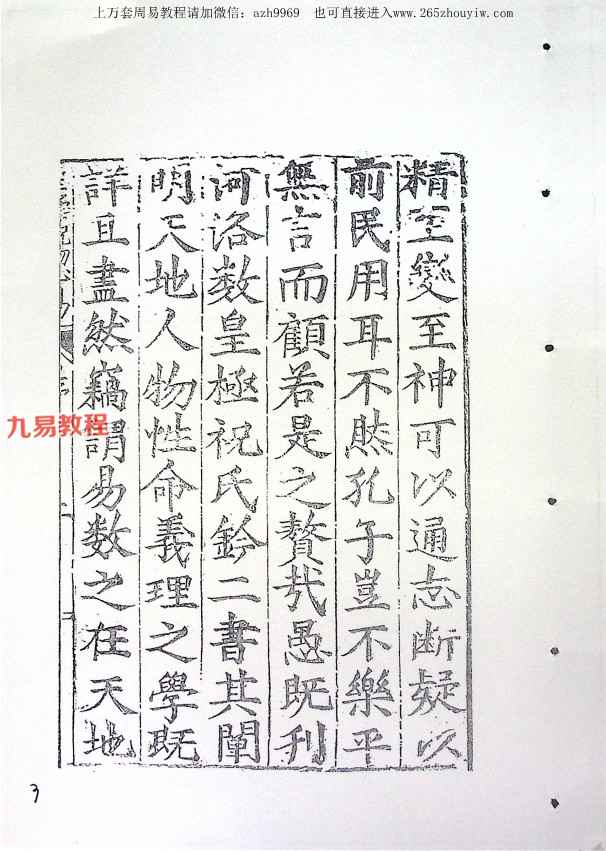 上万套周易教程请加微信：azh9969　也可直接进入www.265zhouyiw.com
精至變至神可以通志断疑以
前民用耳不然孔子豈不樂乎
無言而顧若是之贅㢤愚既刋
河洛数皇極祝氏鈐二書其闡
明天地人物性命義理之學既
詳且盡然竊謂易数之在天地
九易教程
3